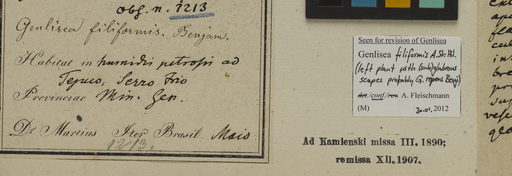 obs. n. 1213
Genlisea filiformis. Benjam.
Habitat in humidis petrosis ad
Tejuco, Serro Frio
Provinciae Min. Gen.
Dr Martius Iter Brasil. Maio
1213.
Seen for revision of Genlisea
Genlisea filiformis A.St.Hil.
(left plant with
scapes probably G. repens Benj.)
det/conf/rev A. Fleischmann
(M) 2012
Ad Kamienski missa III. 1890;
remissa XII. 1907.